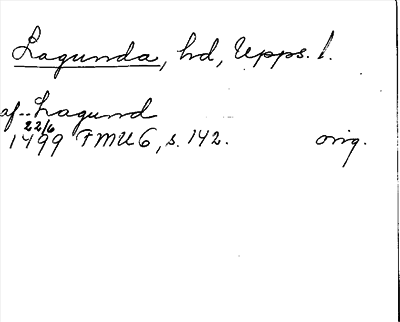 Lagunda, hd, Upps. l.
af.. Lagund
22/6
1499 FMU 6, s. 142. orig.